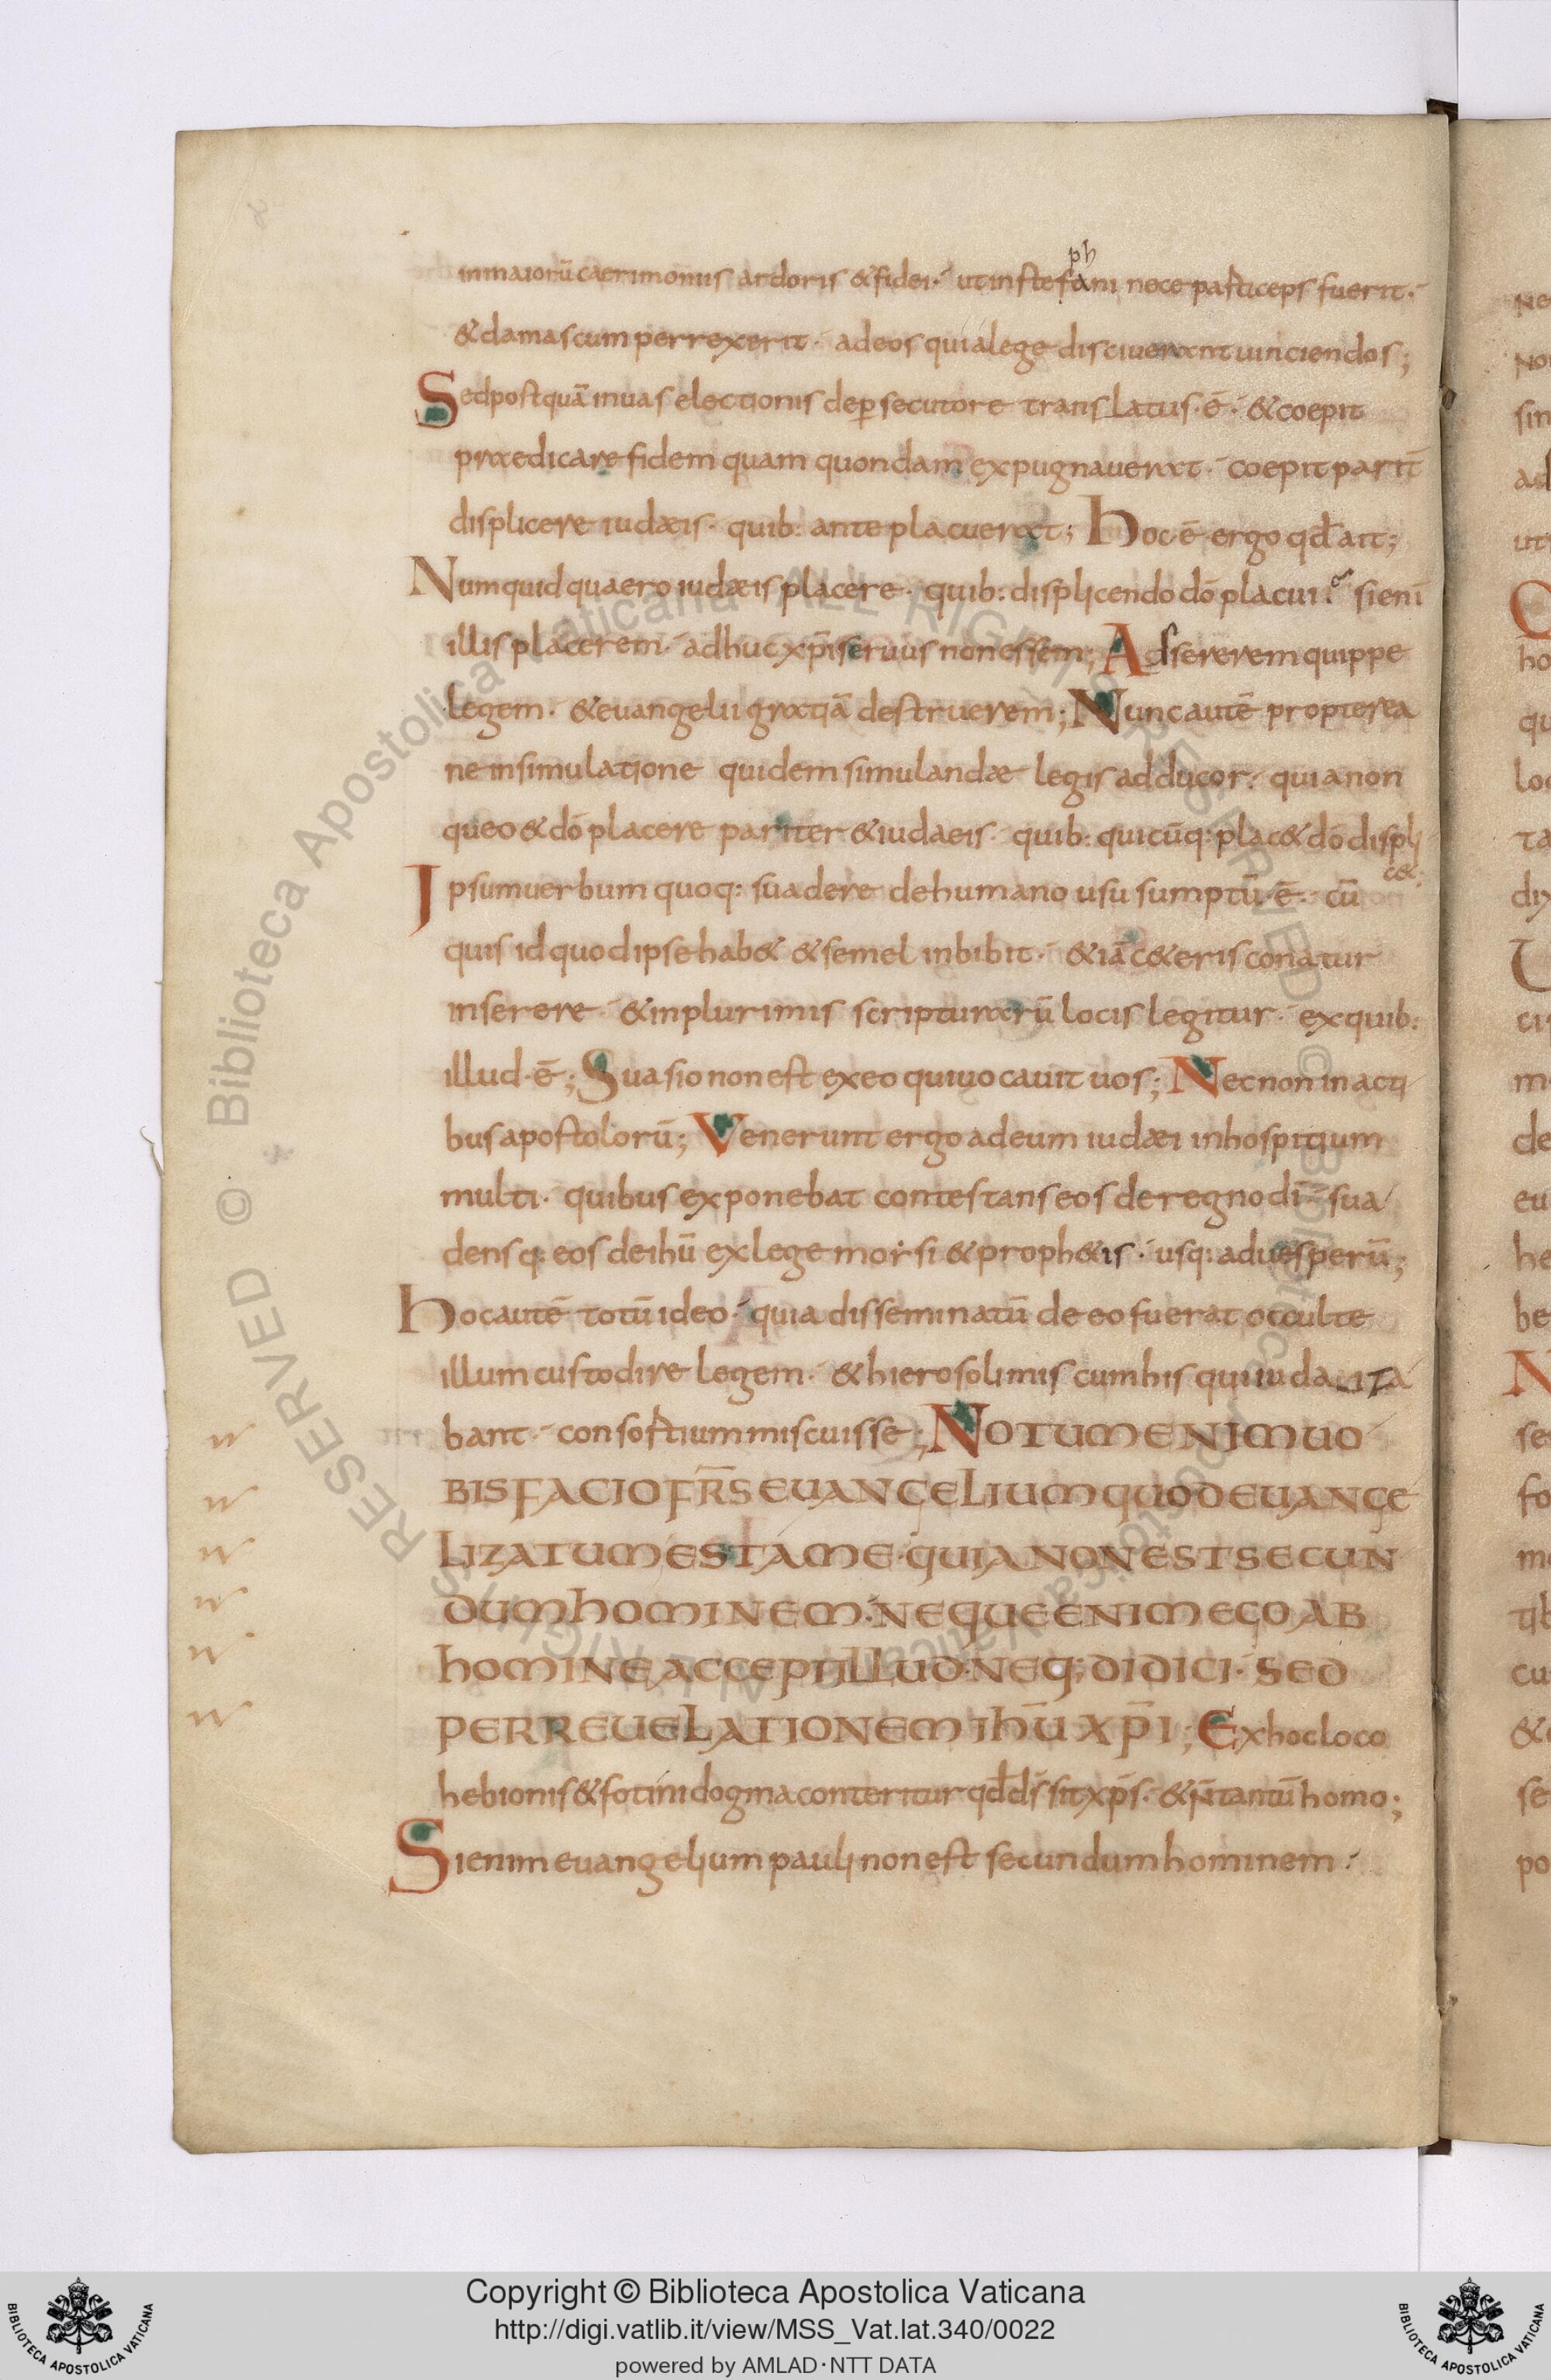 inmaiorū caerimoniis ardoris & fidei · ut in stefani nece particeps fuerit ·
ph
& damascum perrexerit · ad eos qui a lege disciuerant uinciendos ;
Sed postquā in uas electionis de p̱secutore translatus · ē · & coepit
praedicare fidem quam quondam expugnauerat · coepit parit̄
displicere iudæis · quib: ante placuerat ; Hoc · ē · ergo qđ ait ;
Numquid quaero iudæis placere · quib: displicendo dō placui · si eni
illis placerem · adhuc xp̄i seruus non essem ; Adsererem quippe
legem · & euangelii gratiā destruerem ; Nunc autē propterea
ne in simulatione quidem simulandæ legis adducor · quia non
queo & dō placere pariter & iudaeis · quib: quicūq: plac& dō displi
c&;
Ipsum uerbum quoq: suadere de humano usu sumptū · ē · cū
quis id quod ipse hab& & semel inbibit · & iā c&eris conatur
inserere · & in plurimis scripturarū locis legitur · ex quib:
illud · ē ; Suasio non est ex eo qui uocauit uos ; Nec non in acti
bus apostolorū ; Venerunt ergo ad eum iudæi in hospitium
multi · quibus exponebat contestans eos de regno dī · sua
densq: eos de ihū ex lege morsi & proph&is · usq: ad uesperū ;
Hoc autē totū ideo · quia disseminatū de eo fuerat occulte
illum custodire legem · & hierosolimis cum his qui iudaiza
bant · consortium miscuisse ; NOTUM ENIM UO
BIS FACIO FR̄S EUANGELIUM QUOD EUANGE
LIZATUM EST A ME · QUIA NON EST SECUN
DUM HOMINEM · NEQUE ENIM EGO AB
HOMINE ACCEPI ILLUD · NEQ; DIDICI · SED
PER REUELATIONEM IHŪ XP̄I ; Ex hoc loco
hebionis & fotini dogma conteritur qđ dš sit xp̄s · & n̄ tantū homo ;
Si enim euangelium pauli non est secundum hominem ·
Copyright © Biblioteca Apostolica Vaticana
http://digi.vatlib.it/view/MSS_Vat.lat.340/0022
powered by AMLAD·NTT DATA
BIBLIOTECA APOSTOLICA VATICANA
BIBLIOTECA APOSTOLICA VATICANA